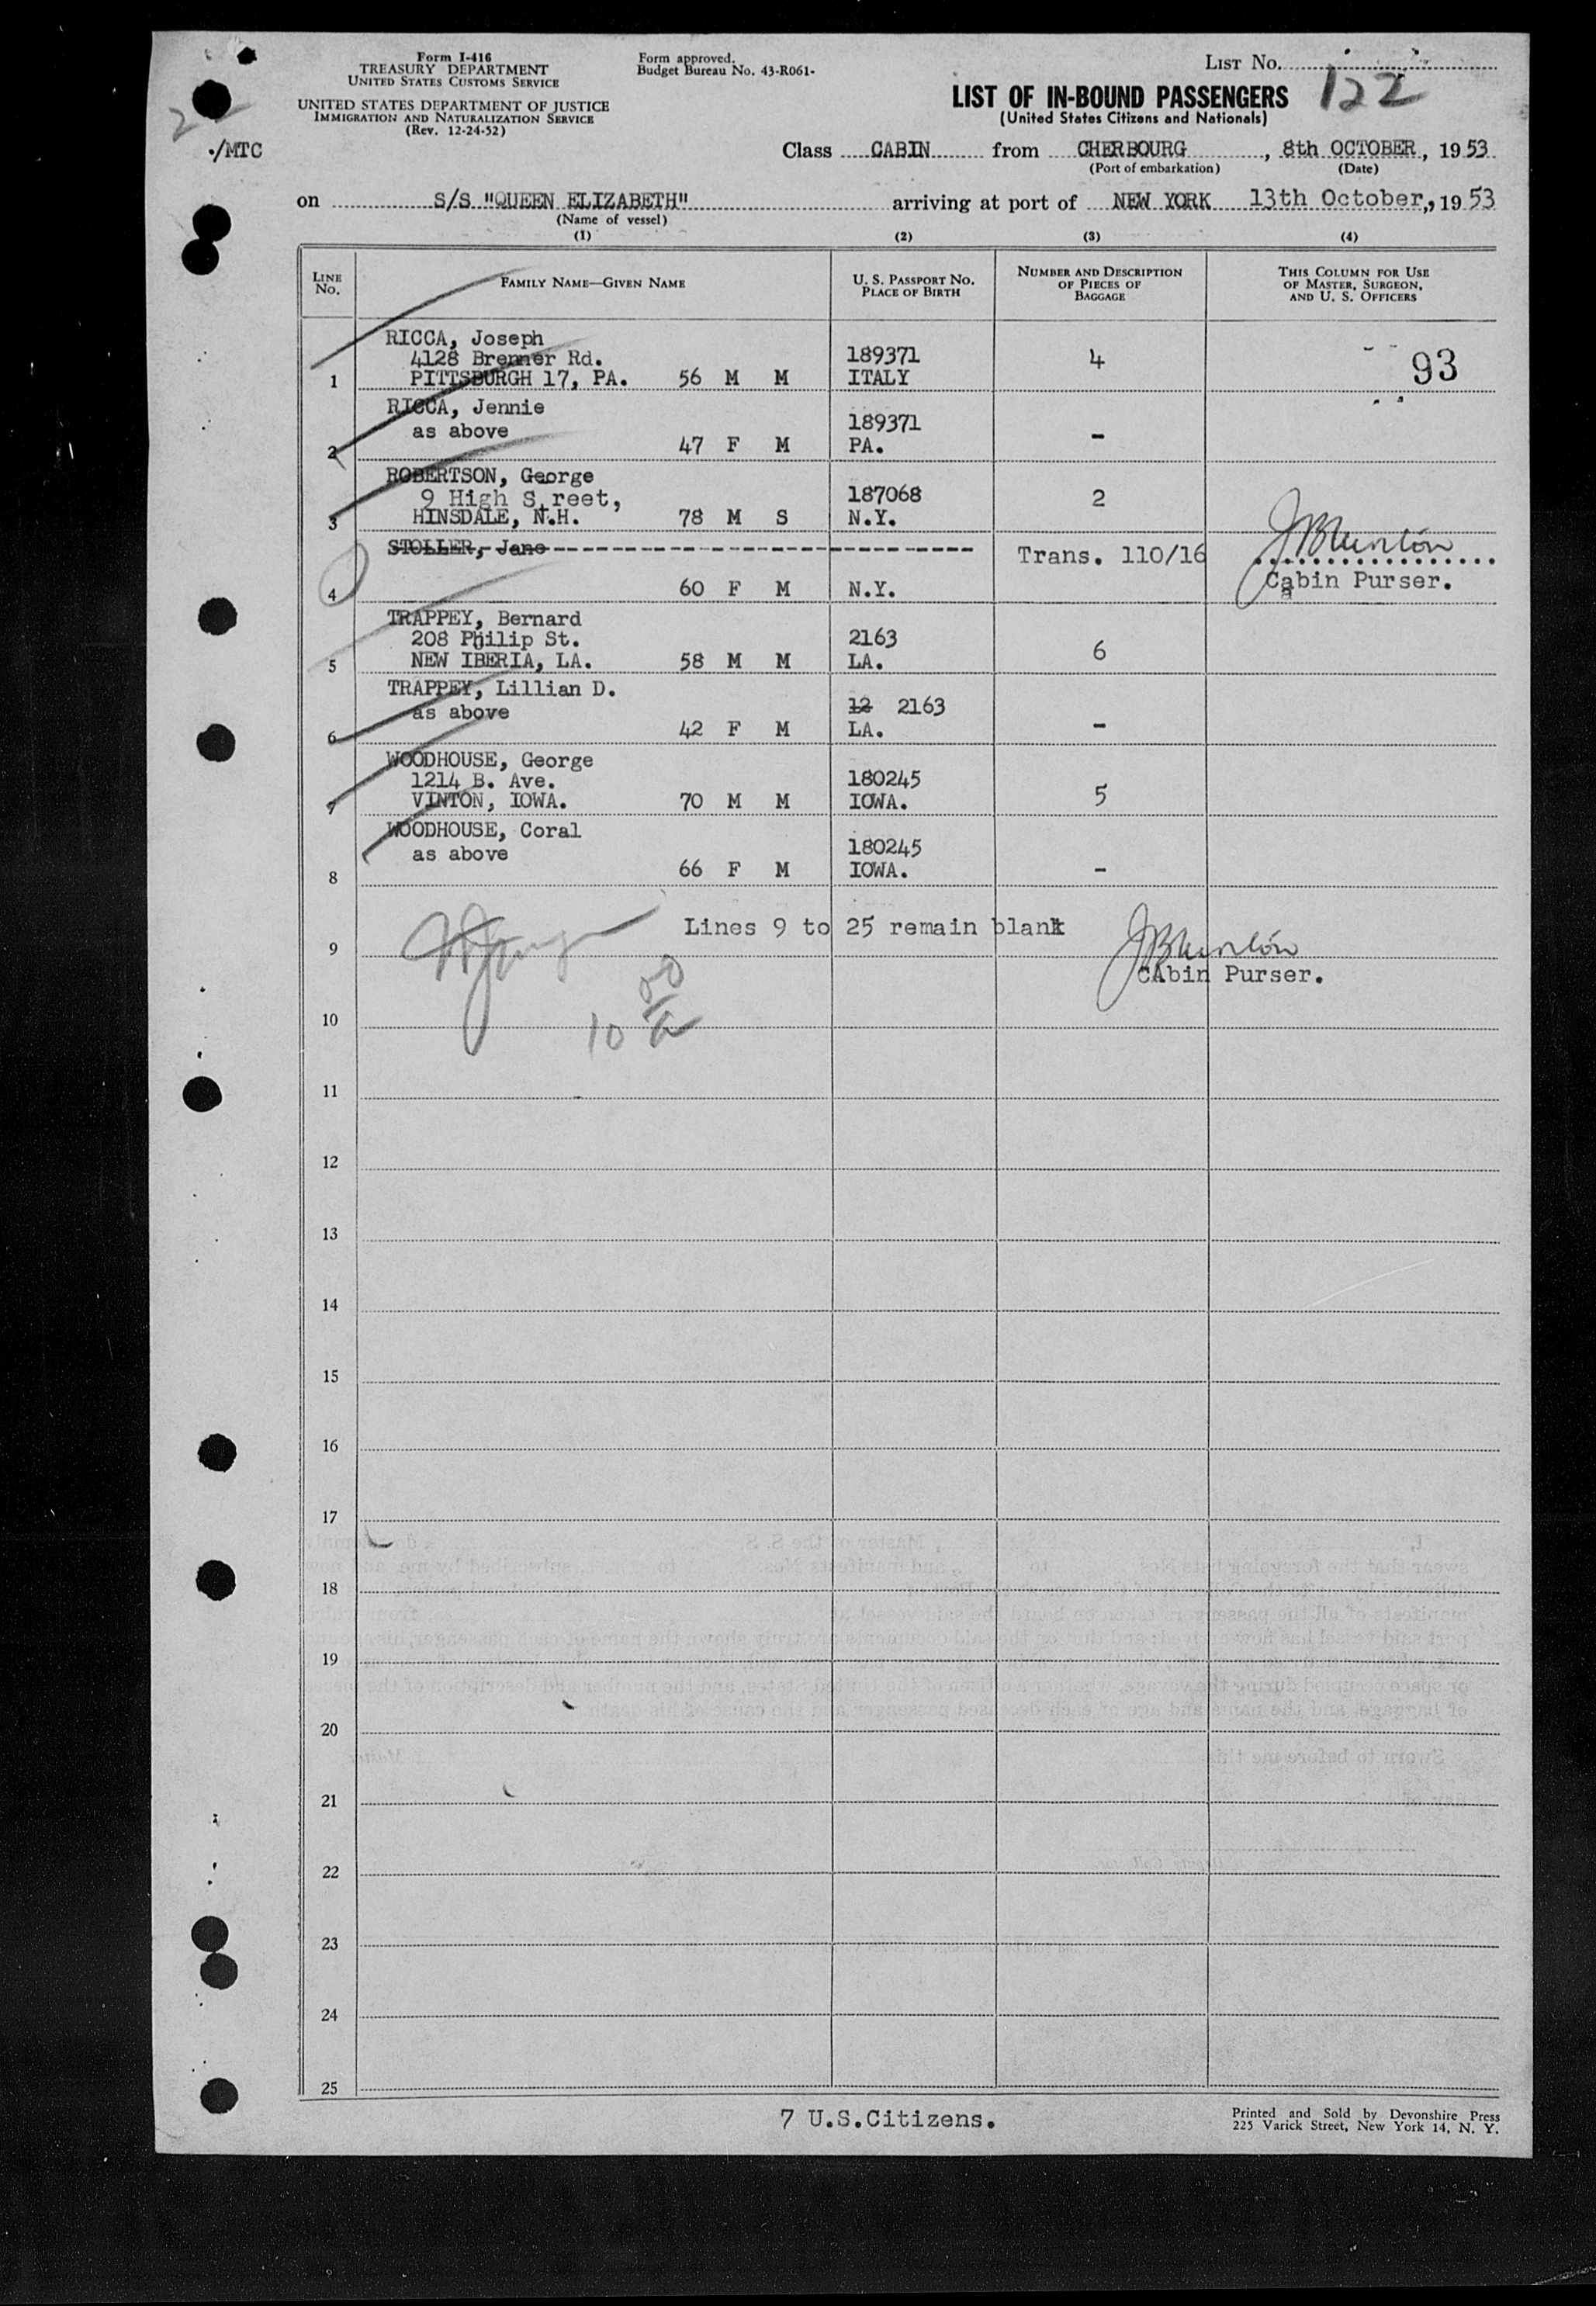 Form I-416
TREASURY DEPARTMENT
UNITED STATES CUSTOMS SERVICE
UNITED STATES DEPARTMENT OF JUSTICE
IMMIGRATION AND NATURALIZATION SERVICE
(Rev. 12-24-52)
Form approved.
Budget Bureau No. 43-R061-
LIST NO. 122
LIST OF IN-BOUND PASSENGERS
(United States Citizens and Nationals)
./MTC
Class CABIN from CHERBOURG, 8th OCTOBER, 1953
(Port of embarkation) (Date)
on S/S "QUEEN ELIZABETH" arriving at port of NEW YORK 13th October, 1953
(Name of vessel)
(1) (2) (3) (4)
LINE NO. FAMILY NAME—GIVEN NAME U. S. PASSPORT NO. PLACE OF BIRTH NUMBER AND DESCRIPTION OF PIECES OF BAGGAGE THIS COLUMN FOR USE OF MASTER, SURGEON, AND U. S. OFFICERS
RICCA, Joseph
4128 Brenner Rd. 189371 4 93
1 PITTSBURGH 17, PA. 56 M M ITALY
RICCA, Jennie
as above 189371
2 47 F M PA. -
ROBERTSON, George
9 High Street, 187068 2
3 HINSDALE, N.H. 78 M S N.Y.
STOLLER, Jane Trans. 110/16
4 60 F M N.Y. Cabin Purser.
TRAPPEY, Bernard
208 Philip St. 2163 6
5 NEW IBERIA, LA. 58 M M LA.
TRAPPEY, Lillian D.
as above 12 2163
6 42 F M LA. -
WOODHOUSE, George
1214 B. Ave. 180245 5
7 VINTON, IOWA. 70 M M IOWA.
WOODHOUSE, Coral
as above 180245
8 66 F M IOWA. -
Lines 9 to 25 remain blank
9
CAbin Purser.
10
11
12
13
14
15
16
17
18
19
20
21
22
23
24
25
7 U.S.Citizens.
Printed and Sold by Devonshire Press
225 Varick Street, New York 14, N. Y.